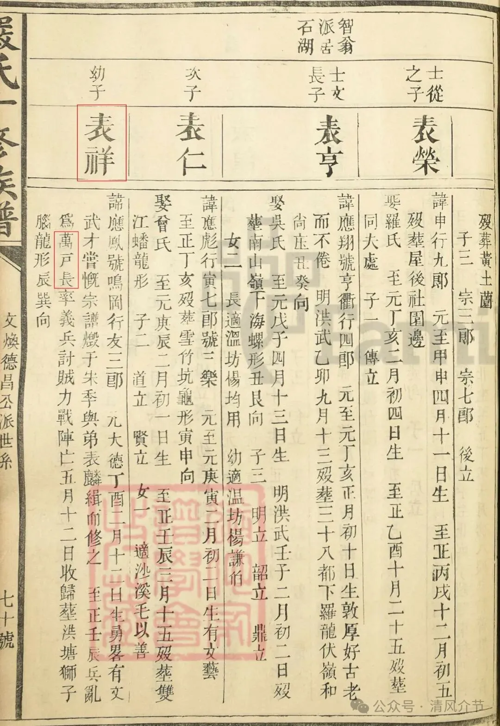 智翁
派居
石湖
士從
之子
士文
長子
次子
幼子
表榮
表亨
表仁
表祥
歿葬黄土崗
子三 宗三郎 宗七郎 後立
諱申行九郎 元至甲申四月十一日生 至正丙戌十二月初五
歿葬屋後社園邊
娶羅氏 至元丁亥二月初四日生 至正乙酉十月二十五歿葬
同大處 子一 傳立
諱應翔號亨衢行四郎 元至元丁亥正月初十日生敦厚好古老
而不倦 明洪武乙卯九月十三歿葬三十八都下羅龍伏嶺和
尚庄丑癸向
娶吳氏 至元戊子四月十三日生 明洪武壬子二月初二日歿
葬南山嶺下海螺形丑艮向 子三 明立 韶立 鼎立
女二 長適溫坊楊均用 幼適溫坊楊謙伯
諱應彪行寅七郎號三樂 元至元庚寅三月初二日生有文藝
至正丁亥歿葬雪竹坑龜形寅申向
娶曾氏 至元庚辰二月初一日生 至正壬辰三月十五歿葬雙
江蟠龍形 子二 道立 賢立 女一 適沙溪毛以善
諱應鳳號鳴岡行友三郎 元大德丁酉二月十二日生勇畧有文
武才嘗慨宗譜燬于宋季與弟表麟緝而修之 至正壬辰兵亂
爲萬戸長率義兵討賊力戰陣亡五月十二日收歸葬洪塘獅子
腦龍形辰巽向
嚴氏十修族譜
文煥德昌公派世系
七十號
公众号 · 清风介节